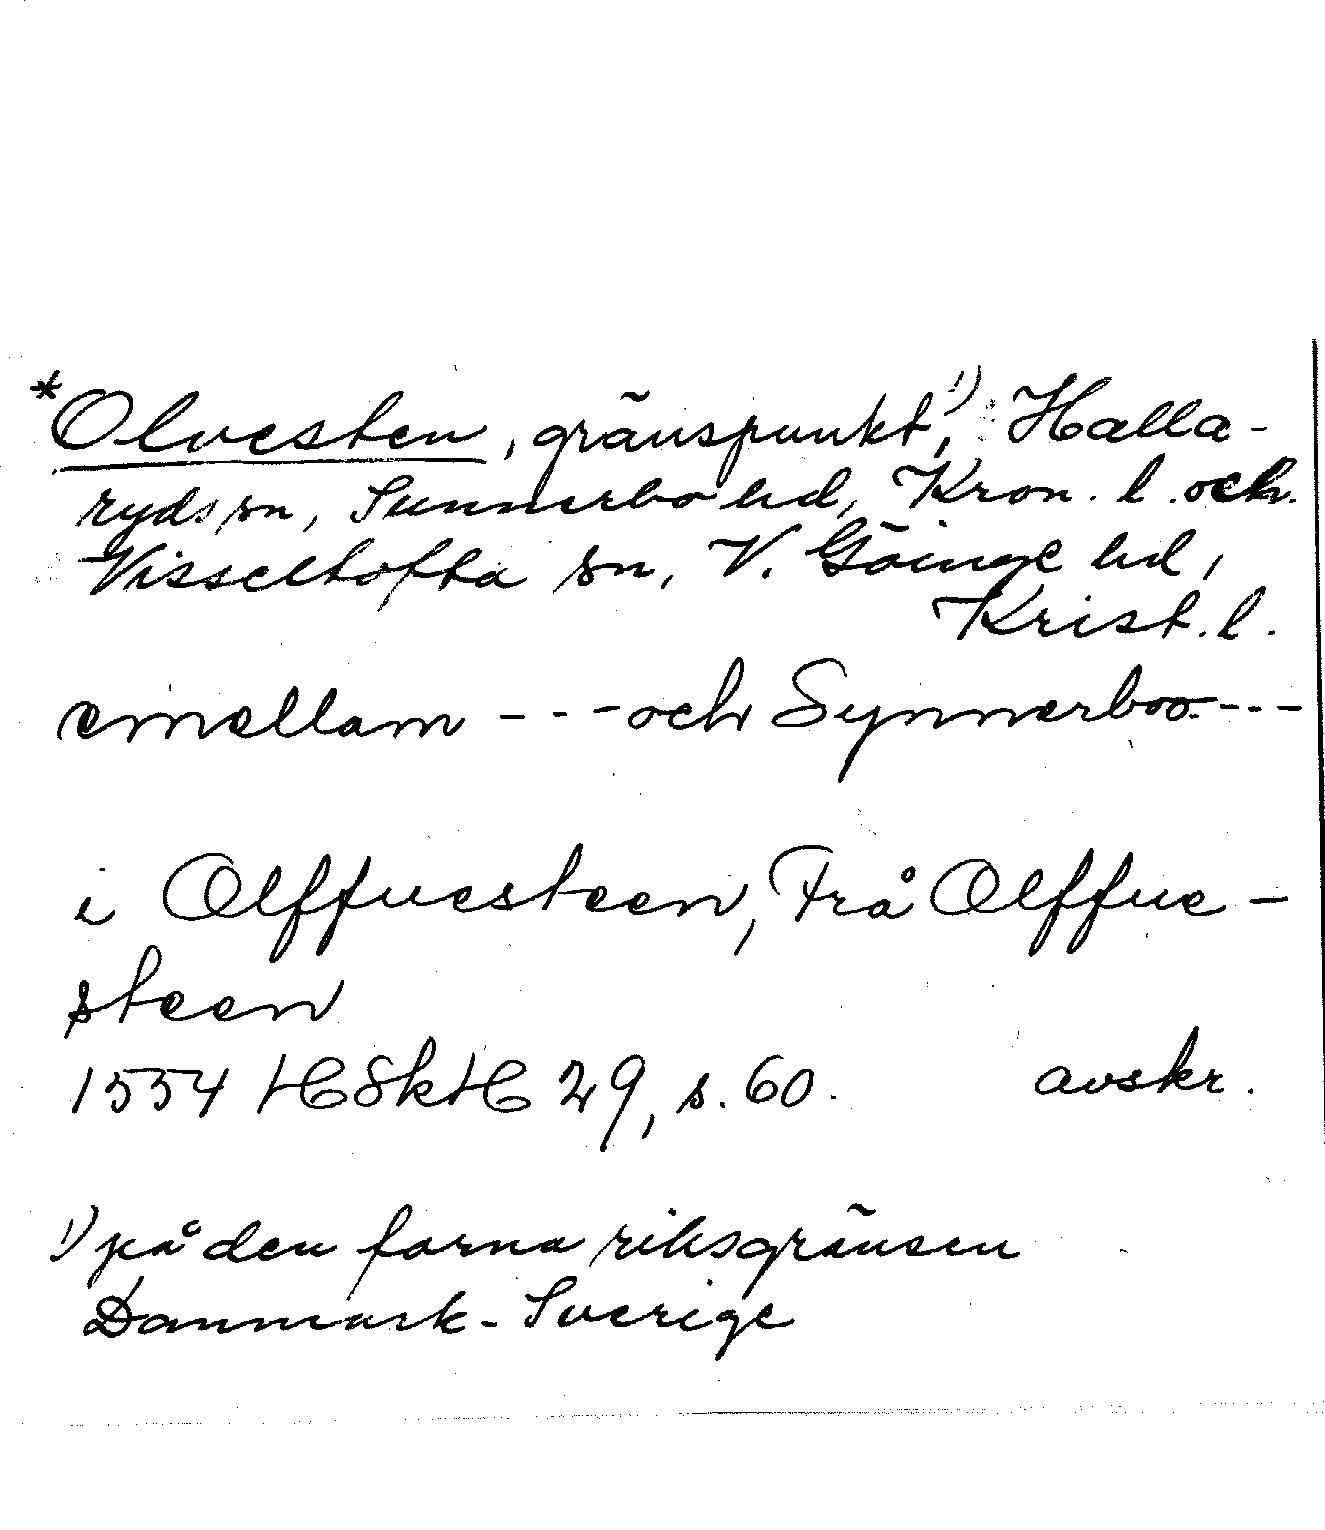 *Olvesten, gränspunkt,¹) Halla-
ryds sn, Sunnerbo hd, Kron. l. och
Visseltofta sn, V. Göinge hd,
Krist. l.
emellam - - - och Synnerboo - - -
i Olffuesteen, Frå Olffue-
steen
1554 HSkH 29, s. 60. avskr.
¹) på den forna riksgränsen
Danmark - Sverige